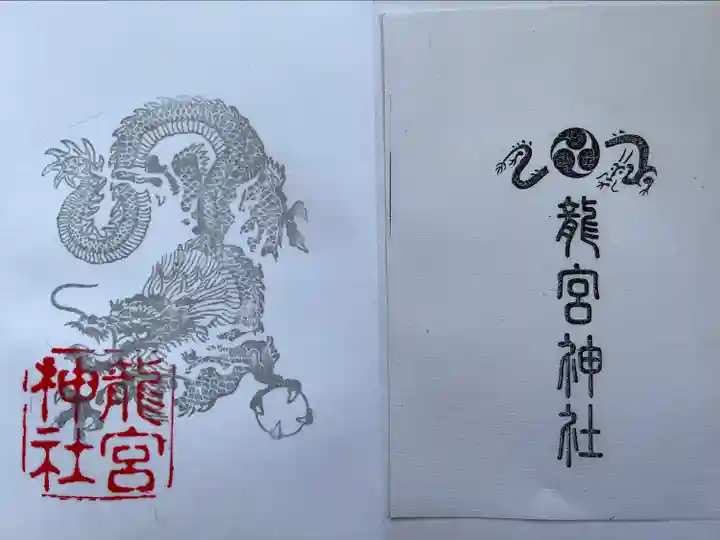 龍宮
神社
龍宮神社